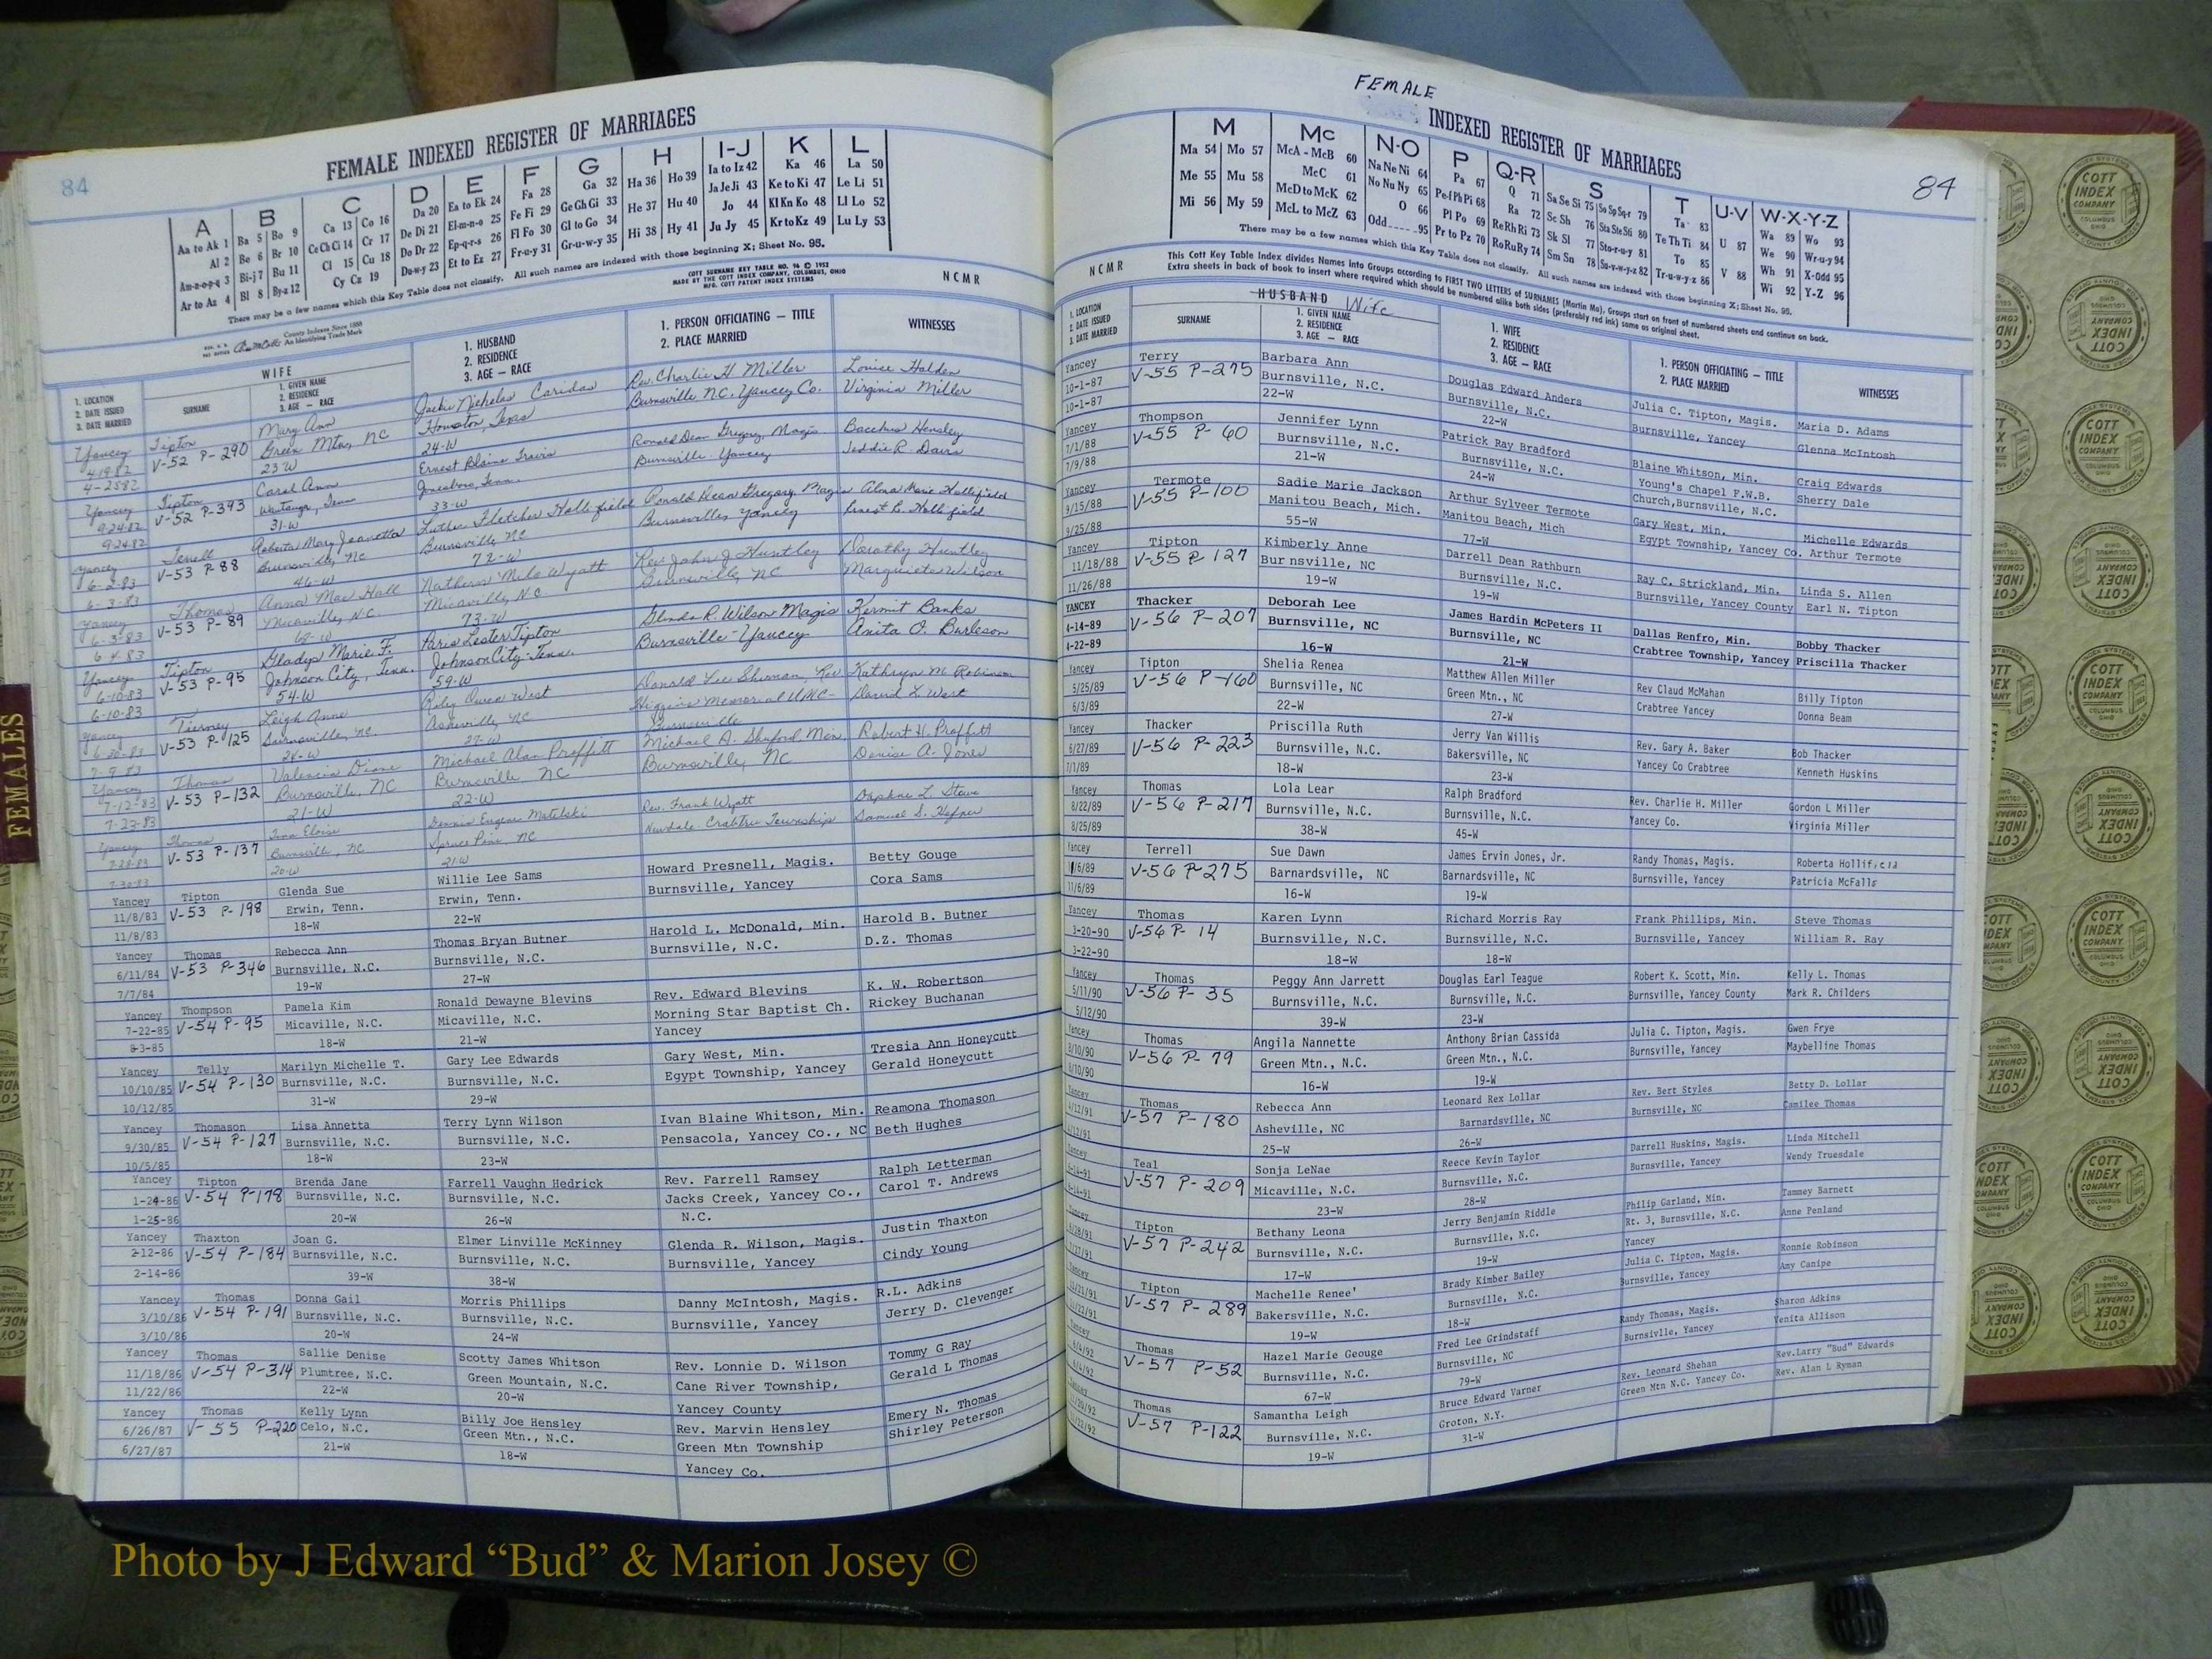 84
FEMALE INDEXED REGISTER OF MARRIAGES
A
Aa to Ak 1
Al 2
Am-n-o-p-q 3
Ar to Az 4
B
Ba 5 Bo 9
Be 6 Br 10
Bi-j 7 Bu 11
Bl 8 By-z 12
C
Ca 13 Co 16
Ce Ch Ci 14 Cr 17
Cl 15 Cu 18
Cy Cz 19
D
Da 20
De Di 21
Do Dr 22
Du-w-y 23
E
Ea to Ek 24
El-m-n-o 25
Ep-q-r-s 26
Et to Ez 27
F
Fa 28
Fe Fi 29
Fl Fo 30
Fr-u-y 31
G
Ga 32
Ge Gh Gi 33
Gl to Go 34
Gr-u-w-y 35
H
Ha 36 Ho 39
He 37 Hu 40
Hi 38 Hy 41
I-J
Ia to Iz 42
Ja Je Ji 43
Jo 44
Ju Jy 45
K
Ka 46
Ke to Ki 47
Kl Kn Ko 48
Kr to Kz 49
L
La 50
Le Li 51
Ll Lo 52
Lu Ly 53
There may be a few names which this Key Table does not classify. All such names are indexed with those beginning X; Sheet No. 95.
County Indexes Since 1888
An Identifying Trade Mark
COTT SURNAME KEY TABLE NO. 96 © 1952
MADE BY THE COTT INDEX COMPANY, COLUMBUS, OHIO
MFG. COTT PATENT INDEX SYSTEMS
NCMR
1. LOCATION
2. DATE ISSUED
3. DATE MARRIED
WIFE
SURNAME
1. GIVEN NAME
2. RESIDENCE
3. AGE — RACE
1. HUSBAND
2. RESIDENCE
3. AGE — RACE
1. PERSON OFFICIATING — TITLE
2. PLACE MARRIED
WITNESSES
Yancey Tipton Mary Ann Jackie Nicholas Caridas Rev. Charlie H. Miller Louise Holden
4-19-82 V-52 P-290 Green Mtn, NC Houston, Texas Burnsville N.C. Yancey Co. Virginia Miller
4-25-82 23 W 24-W
Yancey Tipton Carol Ann Ernest Blaine Travis Ronald Dean Gregory, Magis Bacchus Hensley
9-24-82 V-52 P-393 Watauga, Tenn Jonesboro, Tenn. Burnsville Yancey Jeddie R. Davis
9-24-82 31-W 33-W
Yancey Terrell Roberta Mary Jeanetta Luther Fletcher Hollifield Ronald Dean Gregory, Magis Alma Marie Hollifield
6-2-83 V-53 P-88 Burnsville, NC Burnsville NC Burnsville, Yancey Ernest C. Hollifield
6-3-83 46-W 72-W
Yancey Thomas Anna Mae Hall Nathern Milo Wyatt Rev. John J Huntley Dorothy Huntley
6-3-83 V-53 P-89 Micaville, N.C. Micaville, N.C. Burnsville, NC Marquieta Wilson
6-4-83 68-W 73-W
Yancey Tipton Gladys Marie F. Paris Lester Tipton Glenda R. Wilson Magis Kermit Banks
6-10-83 V-53 P-95 Johnson City, Tenn. Johnson City-Tenn. Burnsville-Yancey Anita O. Burleson
6-10-83 54-W 59-W
Yancey Tierney Leigh Anne Riley Owen West Donald Lee Shuman, Rev Kathryn M. Robinson
6-30-83 V-53 P-125 Burnsville, NC Asheville, NC Higgins Memorial UMC- David L West
7-9-83 24-W 27-W Burnsville
Yancey Thomas Valencia Diane Michael Alan Proffitt Michael A. Shuford Min. Robert H. Proffitt
7-12-83 V-53 P-132 Burnsville, NC Burnsville NC Burnsville, NC Denise A. Jones
7-23-83 21-W 22-W
Yancey Thomas Tina Eloise Dennis Eugene Matelski Rev. Frank Wyatt Daphne L. Stowe
7-28-83 V-53 P-137 Burnsville, NC Spruce Pine, NC Newdale Crabtree Township Samuel S. Hefner
7-30-83 20-W 21-W
Yancey Tipton Glenda Sue Willie Lee Sams Howard Presnell, Magis. Betty Gouge
11/8/83 V-53 P-198 Erwin, Tenn. Erwin, Tenn. Burnsville, Yancey Cora Sams
11/8/83 18-W 22-W
Yancey Thomas Rebecca Ann Thomas Bryan Butner Harold L. McDonald, Min. Harold B. Butner
6/11/84 V-53 P-346 Burnsville, N.C. Burnsville, N.C. Burnsville, N.C. D.Z. Thomas
7/7/84 19-W 27-W
Yancey Thompson Pamela Kim Ronald Dewayne Blevins Rev. Edward Blevins K. W. Robertson
7-22-85 V-54 P-95 Micaville, N.C. Micaville, N.C. Morning Star Baptist Ch. Rickey Buchanan
8-3-85 18-W 21-W Yancey
Yancey Telly Marilyn Michelle T. Gary Lee Edwards Gary West, Min. Tresia Ann Honeycutt
10/10/85 V-54 P-130 Burnsville, N.C. Burnsville, N.C. Egypt Township, Yancey Gerald Honeycutt
10/12/85 31-W 29-W
Yancey Thomason Lisa Annetta Terry Lynn Wilson Ivan Blaine Whitson, Min. Reamona Thomason
9/30/85 V-54 P-127 Burnsville, N.C. Burnsville, N.C. Pensacola, Yancey Co., NC Beth Hughes
10/5/85 18-W 23-W
Yancey Tipton Brenda Jane Farrell Vaughn Hedrick Rev. Farrell Ramsey Ralph Letterman
1-24-86 V-54 P-178 Burnsville, N.C. Burnsville, N.C. Jacks Creek, Yancey Co., Carol T. Andrews
1-25-86 20-W 26-W N.C.
Yancey Thaxton Joan G. Elmer Linville McKinney Glenda R. Wilson, Magis. Justin Thaxton
2-12-86 V-54 P-184 Burnsville, N.C. Burnsville, N.C. Burnsville, Yancey Cindy Young
2-14-86 39-W 38-W
Yancey Thomas Donna Gail Morris Phillips Danny McIntosh, Magis. R.L. Adkins
3/10/86 V-54 P-191 Burnsville, N.C. Burnsville, N.C. Burnsville, Yancey Jerry D. Clevenger
3/10/86 20-W 24-W
Yancey Thomas Sallie Denise Scotty James Whitson Rev. Lonnie D. Wilson Tommy G Ray
11/18/86 V-54 P-314 Plumtree, N.C. Green Mountain, N.C. Cane River Township, Gerald L Thomas
11/22/86 22-W 20-W Yancey County
Yancey Thomas Kelly Lynn Billy Joe Hensley Rev. Marvin Hensley Emery N. Thomas
6/26/87 V-55 P-220 Celo, N.C. Green Mtn., N.C. Green Mtn Township Shirley Peterson
6/27/87 21-W 18-W Yancey Co.
FEMALE
INDEXED REGISTER OF MARRIAGES
84
M
Ma 54 Mo 57
Me 55 Mu 58
Mi 56 My 59
Mc
McA - McB 60
McC 61
McD to McK 62
McL to McZ 63
N-O
Na Ne Ni 64
No Nu Ny 65
O 66
Odd 95
P
Pa 67
Pe-f Ph Pi 68
Pl Po 69
Pr to Pz 70
Q-R
Q 71
Ra 72
Re Rh Ri 73
Ro Ru Ry 74
S
Sa Se Si 75 So Sp Sq-r 79
Sc Sh 76 Sta Ste Sti 80
Sk Sl 77 Sto-r-u-y 81
Sm Sn 78 Su-v-w-y-z 82
T
Ta 83
Te Th Ti 84
To 85
Tr-u-w-y-z 86
U-V
U 87
V 88
W-X-Y-Z
Wa 89 Wo 93
We 90 Wr-u-y 94
Wh 91 X-Odd 95
Wi 92 Y-Z 96
There may be a few names which this Key Table does not classify. All such names are indexed with those beginning X; Sheet No. 95.
NCMR
This Cott Key Table Index divides Names into Groups according to FIRST TWO LETTERS of SURNAMES (Martin Ma). Groups start on front of numbered sheets and continue on back.
Extra sheets in back of book to insert where required which should be numbered alike both sides (preferably red ink) same as original sheet.
1. LOCATION
2. DATE ISSUED
3. DATE MARRIED
HUSBAND Wife
SURNAME
1. GIVEN NAME
2. RESIDENCE
3. AGE — RACE
1. WIFE
2. RESIDENCE
3. AGE — RACE
1. PERSON OFFICIATING — TITLE
2. PLACE MARRIED
WITNESSES
Yancey Terry Barbara Ann Douglas Edward Anders Julia C. Tipton, Magis. Maria D. Adams
10-1-87 V-55 P-275 Burnsville, N.C. Burnsville, N.C. Burnsville, Yancey Glenna McIntosh
10-1-87 22-W 22-W
Yancey Thompson Jennifer Lynn Patrick Ray Bradford Blaine Whitson, Min. Craig Edwards
7/1/88 V-55 P-60 Burnsville, N.C. Burnsville, N.C. Young's Chapel F.W.B. Sherry Dale
7/9/88 21-W 24-W Church,Burnsville, N.C.
Yancey Termote Sadie Marie Jackson Arthur Sylveer Termote Gary West, Min. Michelle Edwards
9/15/88 V-55 P-100 Manitou Beach, Mich. Manitou Beach, Mich Egypt Township, Yancey Co. Arthur Termote
9/25/88 55-W 77-W
Yancey Tipton Kimberly Anne Darrell Dean Rathburn Ray C. Strickland, Min. Linda S. Allen
11/18/88 V-55 P-127 Burnsville, NC Burnsville, N.C. Burnsville, Yancey County Earl N. Tipton
11/26/88 19-W 19-W
YANCEY Thacker Deborah Lee James Hardin McPeters II Dallas Renfro, Min. Bobby Thacker
4-14-89 V-56 P-207 Burnsville, NC Burnsville, NC Crabtree Township, Yancey Priscilla Thacker
4-22-89 16-W 21-W
Yancey Tipton Shelia Renea Matthew Allen Miller Rev Claud McMahan Billy Tipton
5/25/89 V-56 P-160 Burnsville, NC Green Mtn., NC Crabtree Yancey Donna Beam
6/3/89 22-W 27-W
Yancey Thacker Priscilla Ruth Jerry Van Willis Rev. Gary A. Baker Bob Thacker
6/27/89 V-56 P-223 Burnsville, N.C. Bakersville, NC Yancey Co Crabtree Kenneth Huskins
7/1/89 18-W 23-W
Yancey Thomas Lola Lear Ralph Bradford Rev. Charlie H. Miller Gordon L Miller
8/22/89 V-56 P-217 Burnsville, N.C. Burnsville, N.C. Yancey Co. Virginia Miller
8/25/89 38-W 45-W
Yancey Terrell Sue Dawn James Ervin Jones, Jr. Randy Thomas, Magis. Roberta Hollifield
11/6/89 V-56 P-275 Barnardsville, NC Barnardsville, NC Burnsville, Yancey Patricia McFalls
11/6/89 16-W 19-W
Yancey Thomas Karen Lynn Richard Morris Ray Frank Phillips, Min. Steve Thomas
3-20-90 V-56 P-14 Burnsville, N.C. Burnsville, N.C. Burnsville, Yancey William R. Ray
3-22-90 18-W 18-W
Yancey Thomas Peggy Ann Jarrett Douglas Earl Teague Robert K. Scott, Min. Kelly L. Thomas
5/11/90 V-56 P-35 Burnsville, N.C. Burnsville, N.C. Burnsville, Yancey County Mark R. Childers
5/12/90 39-W 23-W
Yancey Thomas Angila Nannette Anthony Brian Cassida Julia C. Tipton, Magis. Gwen Frye
8/10/90 V-56 P-79 Green Mtn., N.C. Green Mtn., N.C. Burnsville, Yancey Maybelline Thomas
8/10/90 16-W 19-W
Yancey Thomas Rebecca Ann Leonard Rex Lollar Rev. Bert Styles Betty D. Lollar
4/12/91 V-57 P-180 Asheville, NC Barnardsville, NC Burnsville, NC Camilee Thomas
4/12/91 25-W 26-W
Yancey Teal Sonja LeNae Reece Kevin Taylor Darrell Huskins, Magis. Linda Mitchell
6-14-91 V-57 P-209 Micaville, N.C. Burnsville, N.C. Burnsville, Yancey Wendy Truesdale
6-14-91 23-W 28-W
Yancey Tipton Bethany Leona Jerry Benjamin Riddle Philip Garland, Min. Tammey Barnett
V-57 P-242 Burnsville, N.C. Burnsville, N.C. Rt. 3, Burnsville, N.C. Anne Penland
17-W 19-W Yancey
Yancey Tipton Machelle Renee' Brady Kimber Bailey Julia C. Tipton, Magis. Ronnie Robinson
V-57 P-289 Bakersville, N.C. Burnsville, N.C. Burnsville, Yancey Amy Canipe
19-W 18-W
Yancey Thomas Hazel Marie Geouge Fred Lee Grindstaff Randy Thomas, Magis. Sharon Adkins
V-57 P-52 Burnsville, N.C. Burnsville, NC Burnsivlle, Yancey Venita Allison
67-W 79-W
Yancey Thomas Samantha Leigh Bruce Edward Varner Rev. Leonard Shehan Rev.Larry "Bud" Edwards
V-57 P-122 Burnsville, N.C. Groton, N.Y. Green Mtn N.C. Yancey Co. Rev. Alan L Ryman
19-W 31-W
FEMALES
COTT INDEX COMPANY
COLUMBUS OHIO
Photo by J Edward “Bud” & Marion Josey ©